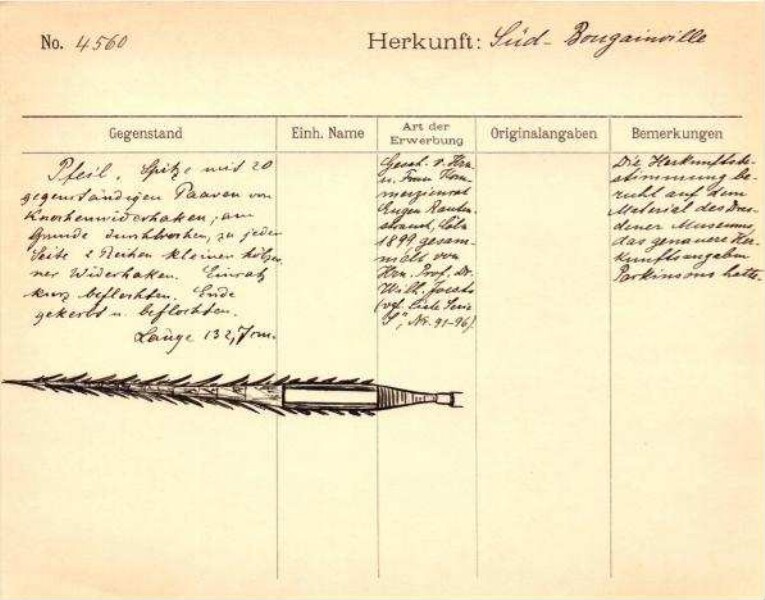 No. 4560
Herkunft: Süd-Bougainville
Gegenstand
Einh. Name
Art der Erwerbung
Originalangaben
Bemerkungen
Pfeil. Spitze mit 20
gegenständigen Paaren von
Knochenwiderhaken; am
Grunde durchbrochen, zu jeder
Seite 2 Reihen kleiner hölzer-
ner Widerhaken. Einsatz
kurz beflochten. Ende
gekerbt u. beflochten.
Länge 132,7 cm.
Gesch. v. Hrn
u. Frau Kom-
merzienrat
Eugen Rauten-
strauch, Cöln
1899 gesam-
melt von
Hrn. Prof. Dr.
Wilh. Joest
(vgl. Liste Serie
"S", Nr. 91-96)
Die Herkunftsbe-
stimmung be-
ruht auf dem
Material des Dres-
dener Museums,
das genauere Her-
kunftsangaben
Parkinsons hatte.